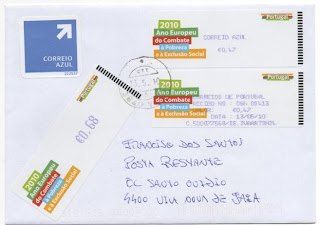 CORREIO
AZUL
2010
Ano Europeu
do Combate
à Pobreza
e à Exclusão Social
Portugal
CORREIO AZUL
€0,47
2010
Ano Europeu
do Combate
à Pobreza
e à Exclusão Social
Portugal
CORREIOS DE PORTUGAL
€0,47
2010
Ano Europeu
do Combate
à Pobreza
e à Exclusão Social
Portugal
€0,68
Francisco dos Santos
Posta Restante
4400 Vila Nova de Gaia